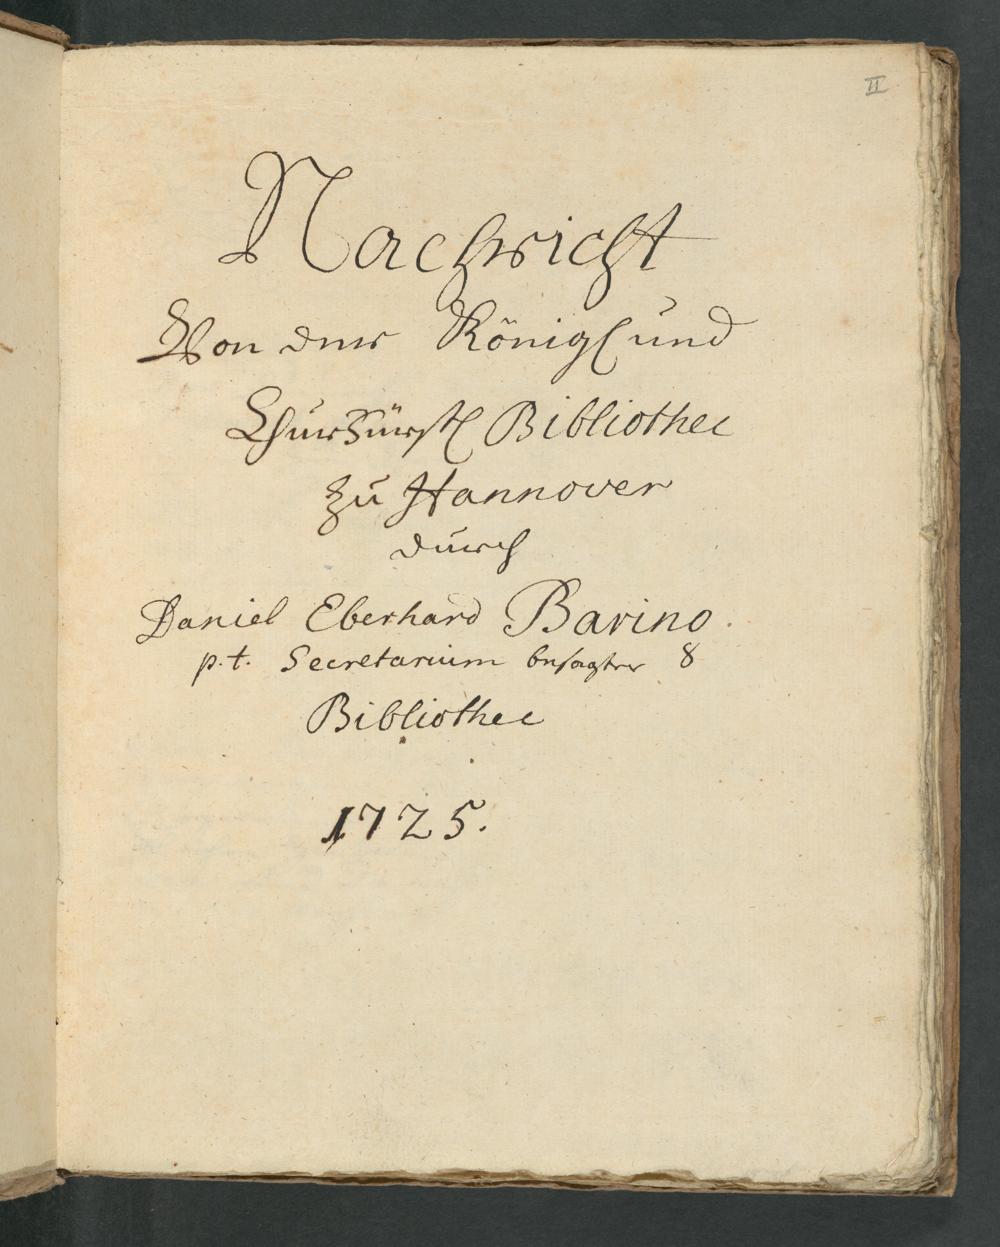 II
Nachricht
Von der Königl und
Churfürstl Bibliothec
zu Hannover
durch
Daniel Eberhard Barino.
p.t. Secretarium besagter
Bibliothec
1725.